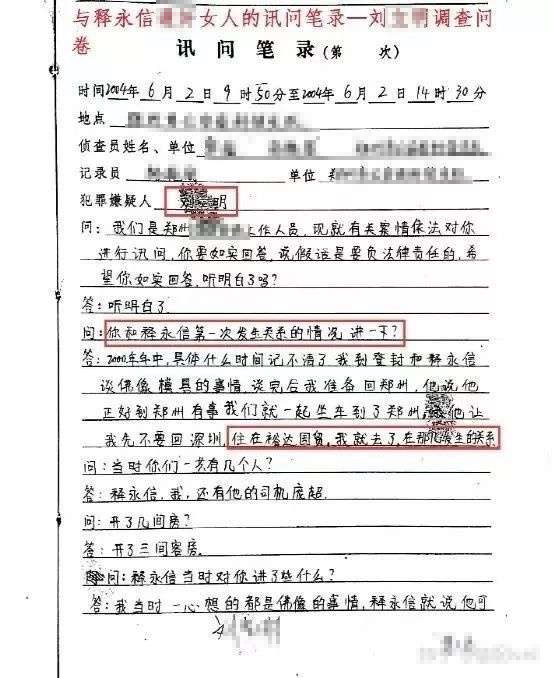 与释永信女人的讯问笔录—刘明调查问
卷
讯 问 笔 录（第 次）
时间2004年6月2日9时50分至2004年6月2日14时30分
地点
侦查员姓名、单位
记录员 单位
犯罪嫌疑人 明
问：我们是郑州工作人员，现就有关案情依法对你
进行讯问，你要如实回答，说假话是要负法律责任的，希
望你如实回答，听明白了吗？
答：听明白了
问：你和释永信第一次发生关系的情况讲一下？
答：2000年年中，具体什么时间记不清了我到登封和释永信
谈佛像模具的事情，谈完后我准备回郑州，他说他
正好到郑州有事我们就一起坐车到了郑州，他让
我先不要回深圳，住在裕达国贸，我就去了，在那儿发生的关系
问：当时你们一共有几个人？
答：释永信，我，还有他的司机庞超.
问：开了几间房？
答：开了三间客房.
问：释永信当时对你讲了些什么？
答：我当时一心想的都是佛像的事情，释永信就说他可